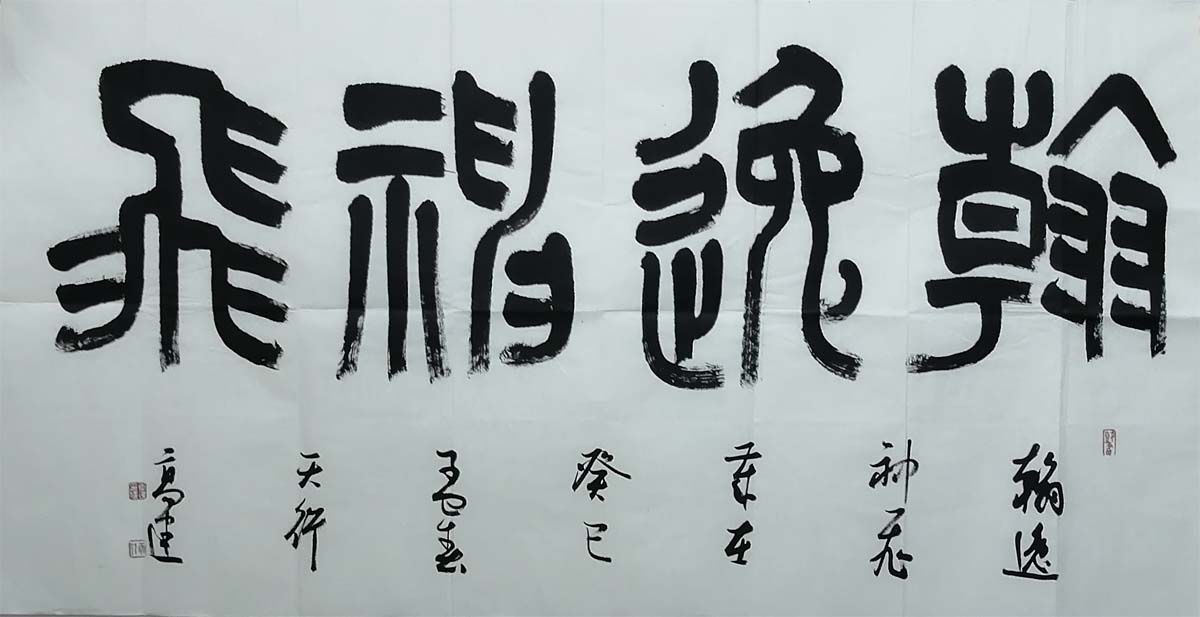 翰逸神飛
翰逸
神飛
歲在
癸巳
孟春
天行
高建